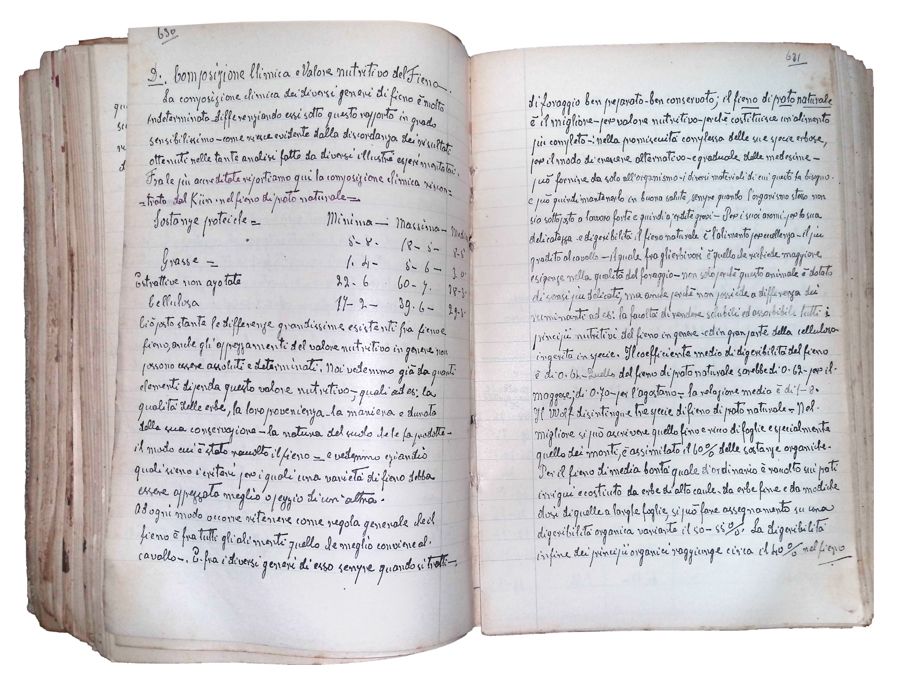 630
D. Composizione Chimica e Valore nutritivo del Fieno.
La composizione chimica dei diversi generi di fieno è molto
indeterminata differenziando essi sotto questo rapporto in grado
sensibilissimo - come riesce evidente dalla discordanza dei risultati
ottenuti nelle tante analisi fatte da diversi illustri esperimentatori.
Fra le più accreditate riportiamo qui la composizione chimica riscon=
trata dal Kün nel fieno di prato naturale =
Sostanze proteiche = Minima - Massima - Media
5-8- 18-5- 8-5
Grasse = 1.4- 5-6- 3.0
Estrattive non azotate 22-6 60-7. 38-3-
Cellulosa 17-2- 39.6- 29-3-
Ciò posto stante le differenze grandissime esistenti fra fieno e
fieno, anche gli apprezzamenti del valore nutritivo in genere non
possono essere assoluti e determinati. Noi vedemmo già da quanti
elementi dipenda questo valore nutritivo - quali ad es: la
qualità delle erbe, la loro provenienza - la maniera e durata
della sua conservazione - la natura del suolo che le ha prodotte -
il modo cui è stato raccolto il fieno = e vedemmo eziandio
quali sieno i criteri per i quali una varietà di fieno debba
essere apprezzata meglio o peggio di un'altra.
Ad ogni modo occorre ritenere come regola generale che il
fieno è fra tutti gli alimenti quello che meglio conviene al
cavallo -. E fra i diversi generi di esso sempre quando si tratti -
631
di foraggio ben preparato - ben conservato; il fieno di prato naturale
è il migliore - per valore nutritivo - perchè costituisce un alimento
più completo - nella promiscuità complessa delle sue specie erbose,
per il modo di crescere alternativo - e graduale delle medesime -
può fornire da solo all'organismo - i diversi materiali di cui questo ha bisogno -
e può quindi mantenerlo in buona salute, sempre quando l'organismo stesso non
sia sottoposto a lavoro forte e quindi a perdite gravi - Per i suoi aromi, per la sua
delicatezza e digeribilità il fieno naturale è l'alimento per eccellenza - il più
gradito al cavallo - il quale fra gli erbivori è quello che richiede maggiore
esigenze nella qualità del foraggio - non solo perchè questo animale è dotato
di sensi più delicati, ma anche perchè non possiede a differenza dei
ruminanti ad es: la facoltà di rendere solubili ed assorbibili tutti i
principii nutritivi del fieno in genere - ed in gran parte della cellulosa
ingerita in specie. Il coefficiente medio di digeribilità del fieno
è di 0.62 - del fieno di prato naturale sarebbe di 0-62 - per il
maggese; di 0-70 - per l'agostano - la relazione media è di
Il Wolf distingue tre specie di fieno di prato naturale = Nel
migliore si può ascrivere quello fino e ricco di foglie e specialmente
quello dei monti, è assimilato il 60% delle sostanze organiche.
Per il fieno di media bontà quale d'ordinario è raccolto sui prati
irrigui e costituito da erbe di alto caule - da erbe fine e da modiche
dosi di quelle a larghe foglie, si può fare assegnamento su una
digeribilità organica variante il 50-55%. La digeribilità
infine dei principii organici raggiunge circa il 40% nel fieno